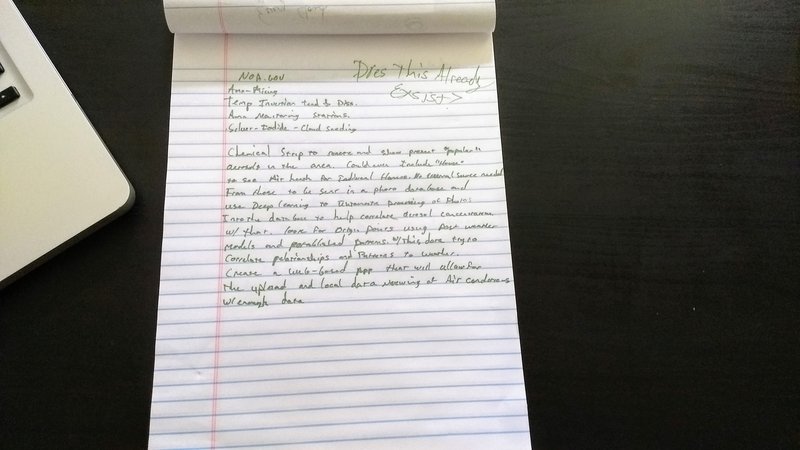 Does This Already
Exsist?
NOA.GOV
Temp Inversion
Monitoring Stations.
Silver-Iodide-Cloud Seeding
Chemical Strip to and show present "popular"
aerosols in the area. Could even Include "Home"
to see Air heath for Indiviual Homes. No external source needed
From those to be sent in a photo database and
use Deep learning to processing of Photos
Into the database to help correlate aerosol concentration
w/ that. look for Origin Points using Past weather
models and patterns. w/This data try to
Correlate relationships and Patterns to weather.
Create a Web-based App that will allow for
the upload and local data viewing of Air conditions
w/ enough data